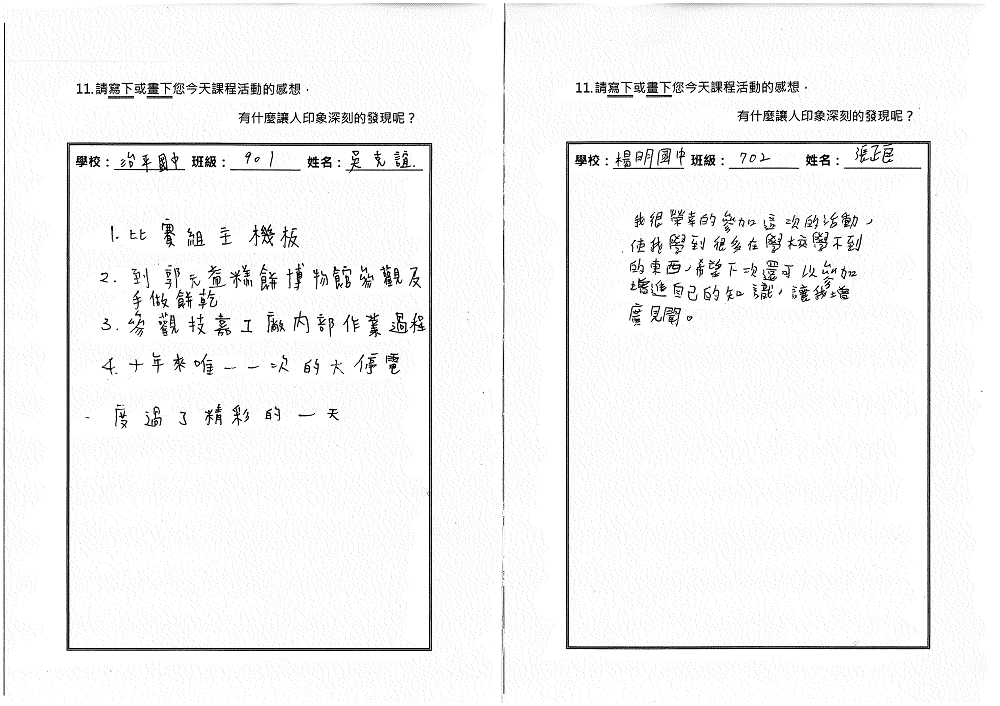 11.請寫下或畫下您今天課程活動的感想，
有什麼讓人印象深刻的發現呢？
學校：治平國中 班級：901 姓名：吳克誼
1. 比賽組主機板
2. 到郭元益糕餅博物館參觀及
手做餅乾
3. 參觀技嘉工廠內部作業過程
4. 十年來唯一一次的大停電
度過了精彩的一天
11.請寫下或畫下您今天課程活動的感想，
有什麼讓人印象深刻的發現呢？
學校：楊明國中 班級：702 姓名：張正
我很榮幸的參加這次的活動，
使我學到很多在學校學不到
的東西，希望下次還可以參加
增進自己的知識，讓我增
廣見聞。